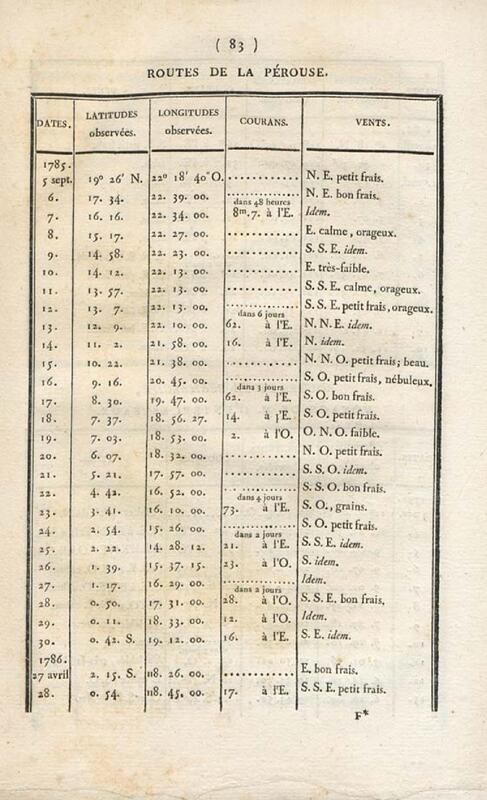 ( 83 )
ROUTES DE LA PÉROUSE.
DATES. LATITUDES observées. LONGITUDES observées. COURANS. VENTS.
1785.
5 sept. 19° 26' N. 22° 18' 40" O. ............ N. E. petit frais.
6. 17. 34. 22. 39. 00. ............ N. E. bon frais.
dans 48 heures
7. 16. 16. 22. 34. 00. 8m. 7. à l'E. Idem.
8. 15. 17. 22. 27. 00. ............ E. calme, orageux.
9. 14. 58. 22. 23. 00. ............ S. S. E. idem.
10. 14. 12. 22. 13. 00. ............ E. très-faible.
11. 13. 57. 22. 13. 00. ............ S. S. E. calme, orageux.
12. 13. 7. 22. 13. 00. ............ S. S. E. petit frais, orageux.
dans 6 jours
13. 12. 9. 22. 10. 00. 62. à l'E. N. N. E. idem.
14. 11. 2. 21. 58. 00. 16. à l'E. N. idem.
15. 10. 22. 21. 38. 00. ............ N. N. O. petit frais; beau.
16. 9. 16. 20. 45. 00. ............ S. O. petit frais, nébuleux.
dans 3 jours
17. 8. 30. 19. 47. 00. 62. à l'E. S. O. bon frais.
18. 7. 37. 18. 56. 27. 14. à l'E. S. O. petit frais.
19. 7. 03. 18. 53. 00. 2. à l'O. O. N. O. faible.
20. 6. 07. 18. 32. 00. ............ N. O. petit frais.
21. 5. 21. 17. 57. 00. ............ S. S. O. idem.
22. 4. 42. 16. 52. 00. ............ S. S. O. bon frais.
dans 4 jours
23. 3. 41. 16. 10. 00. 73. à l'E. S. O., grains.
24. 2. 54. 15. 26. 00. ............ S. O. petit frais.
dans 2 jours
25. 2. 22. 14. 28. 12. 21. à l'E. S. S. E. idem.
26. 1. 39. 15. 37. 15. 23. à l'O. S. idem.
27. 1. 17. 16. 29. 00. ............ Idem.
dans 2 jours
28. 0. 50. 17. 31. 00. 28. à l'O. S. S. E. bon frais.
29. 0. 11. 18. 33. 00. 12. à l'O. Idem.
30. 0. 42. S. 19. 12. 00. 16. à l'E. S. E. idem.
1786.
27 avril 2. 15. S. 118. 26. 00. ............ E. bon frais.
28. 0. 54. 118. 45. 00. 17. à l'E. S. S. E. petit frais.
F*